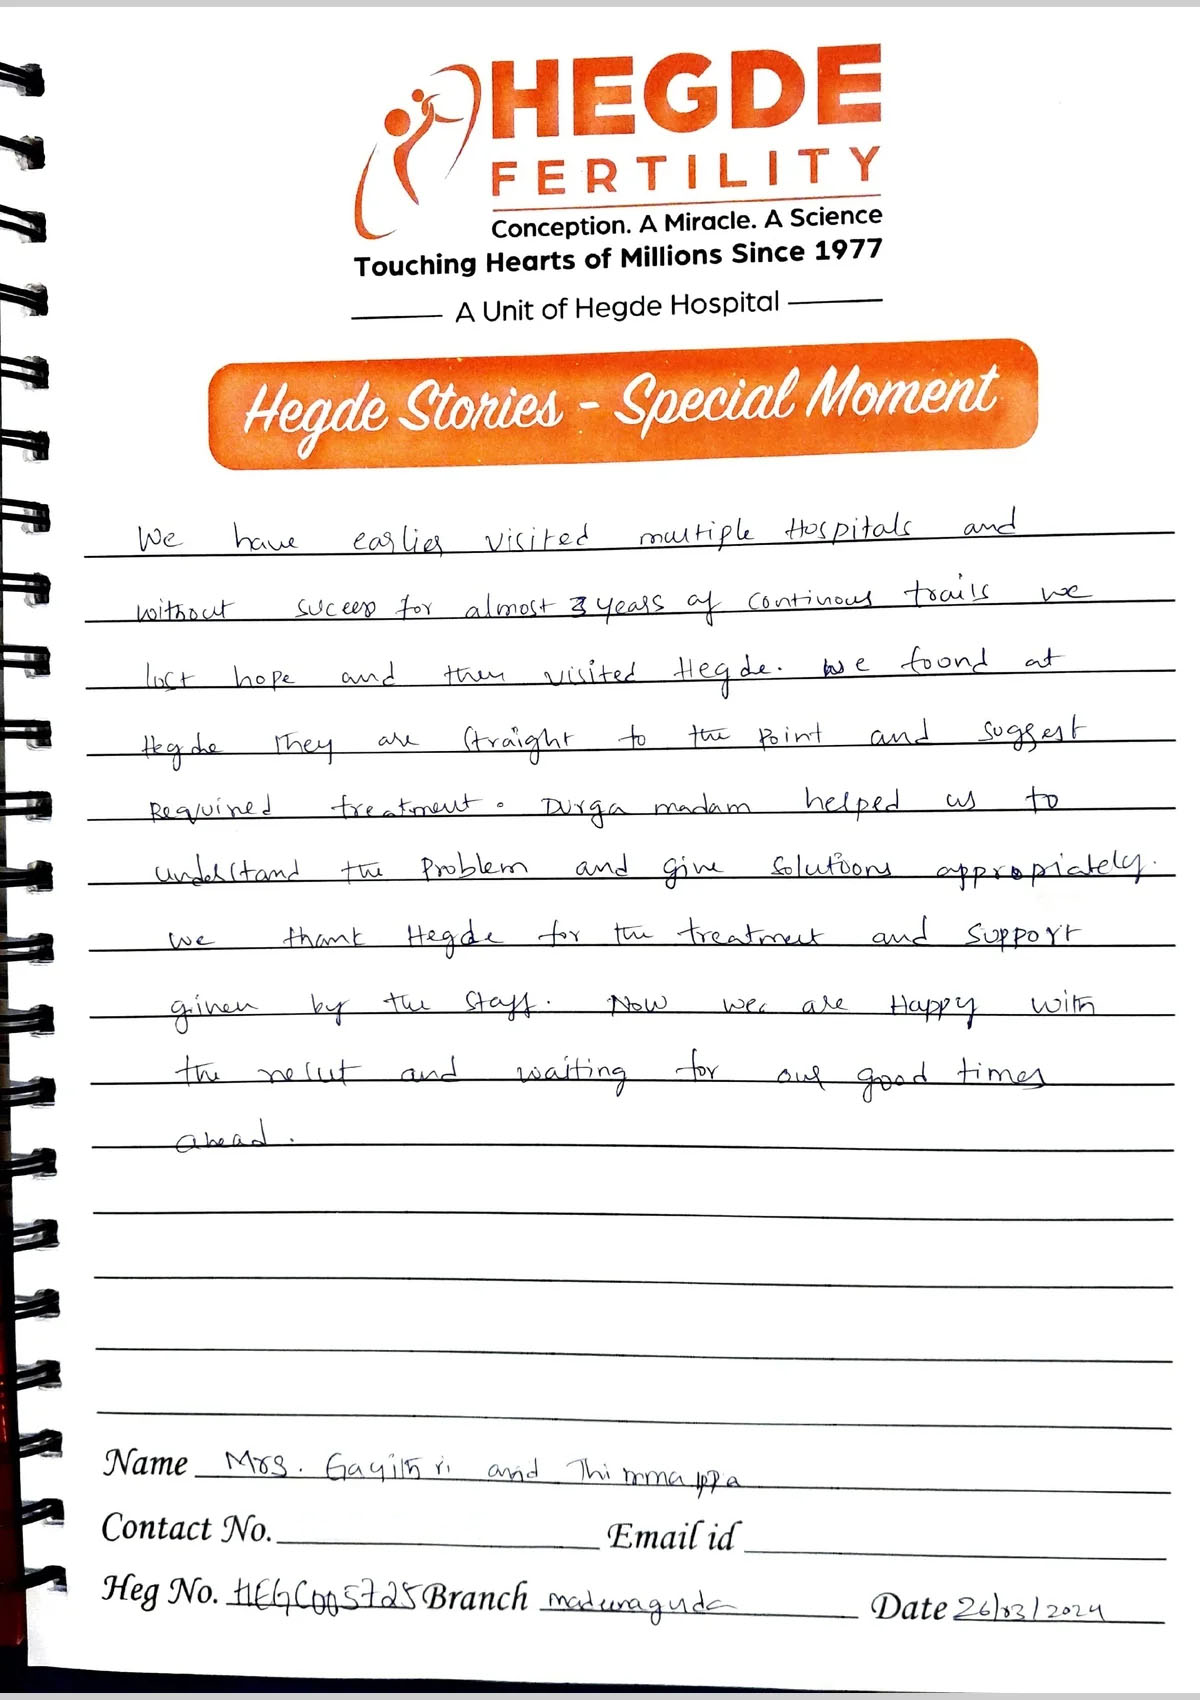 HEGDE
FERTILITY
Conception. A Miracle. A Science
Touching Hearts of Millions Since 1977
A Unit of Hegde Hospital
Hegde Stories - Special Moment
We have earlier visited multiple Hospitals and
without success for almost 3 years of continous trails we
lost hope and then visited Hegde. We found at
Hegde They are straight to the point and suggest
Required treatment. Durga madam helped us to
understand the problem and give solutions appropriately.
we thank Hegde for the treatment and support
given by the staff. Now we are Happy with
the result and waiting for our good times
ahead.
Name Mrs. Gayithri and Thimmappa
Contact No. Email id
Heg No. HEGC005725 Branch maduraguda Date 26/03/2024